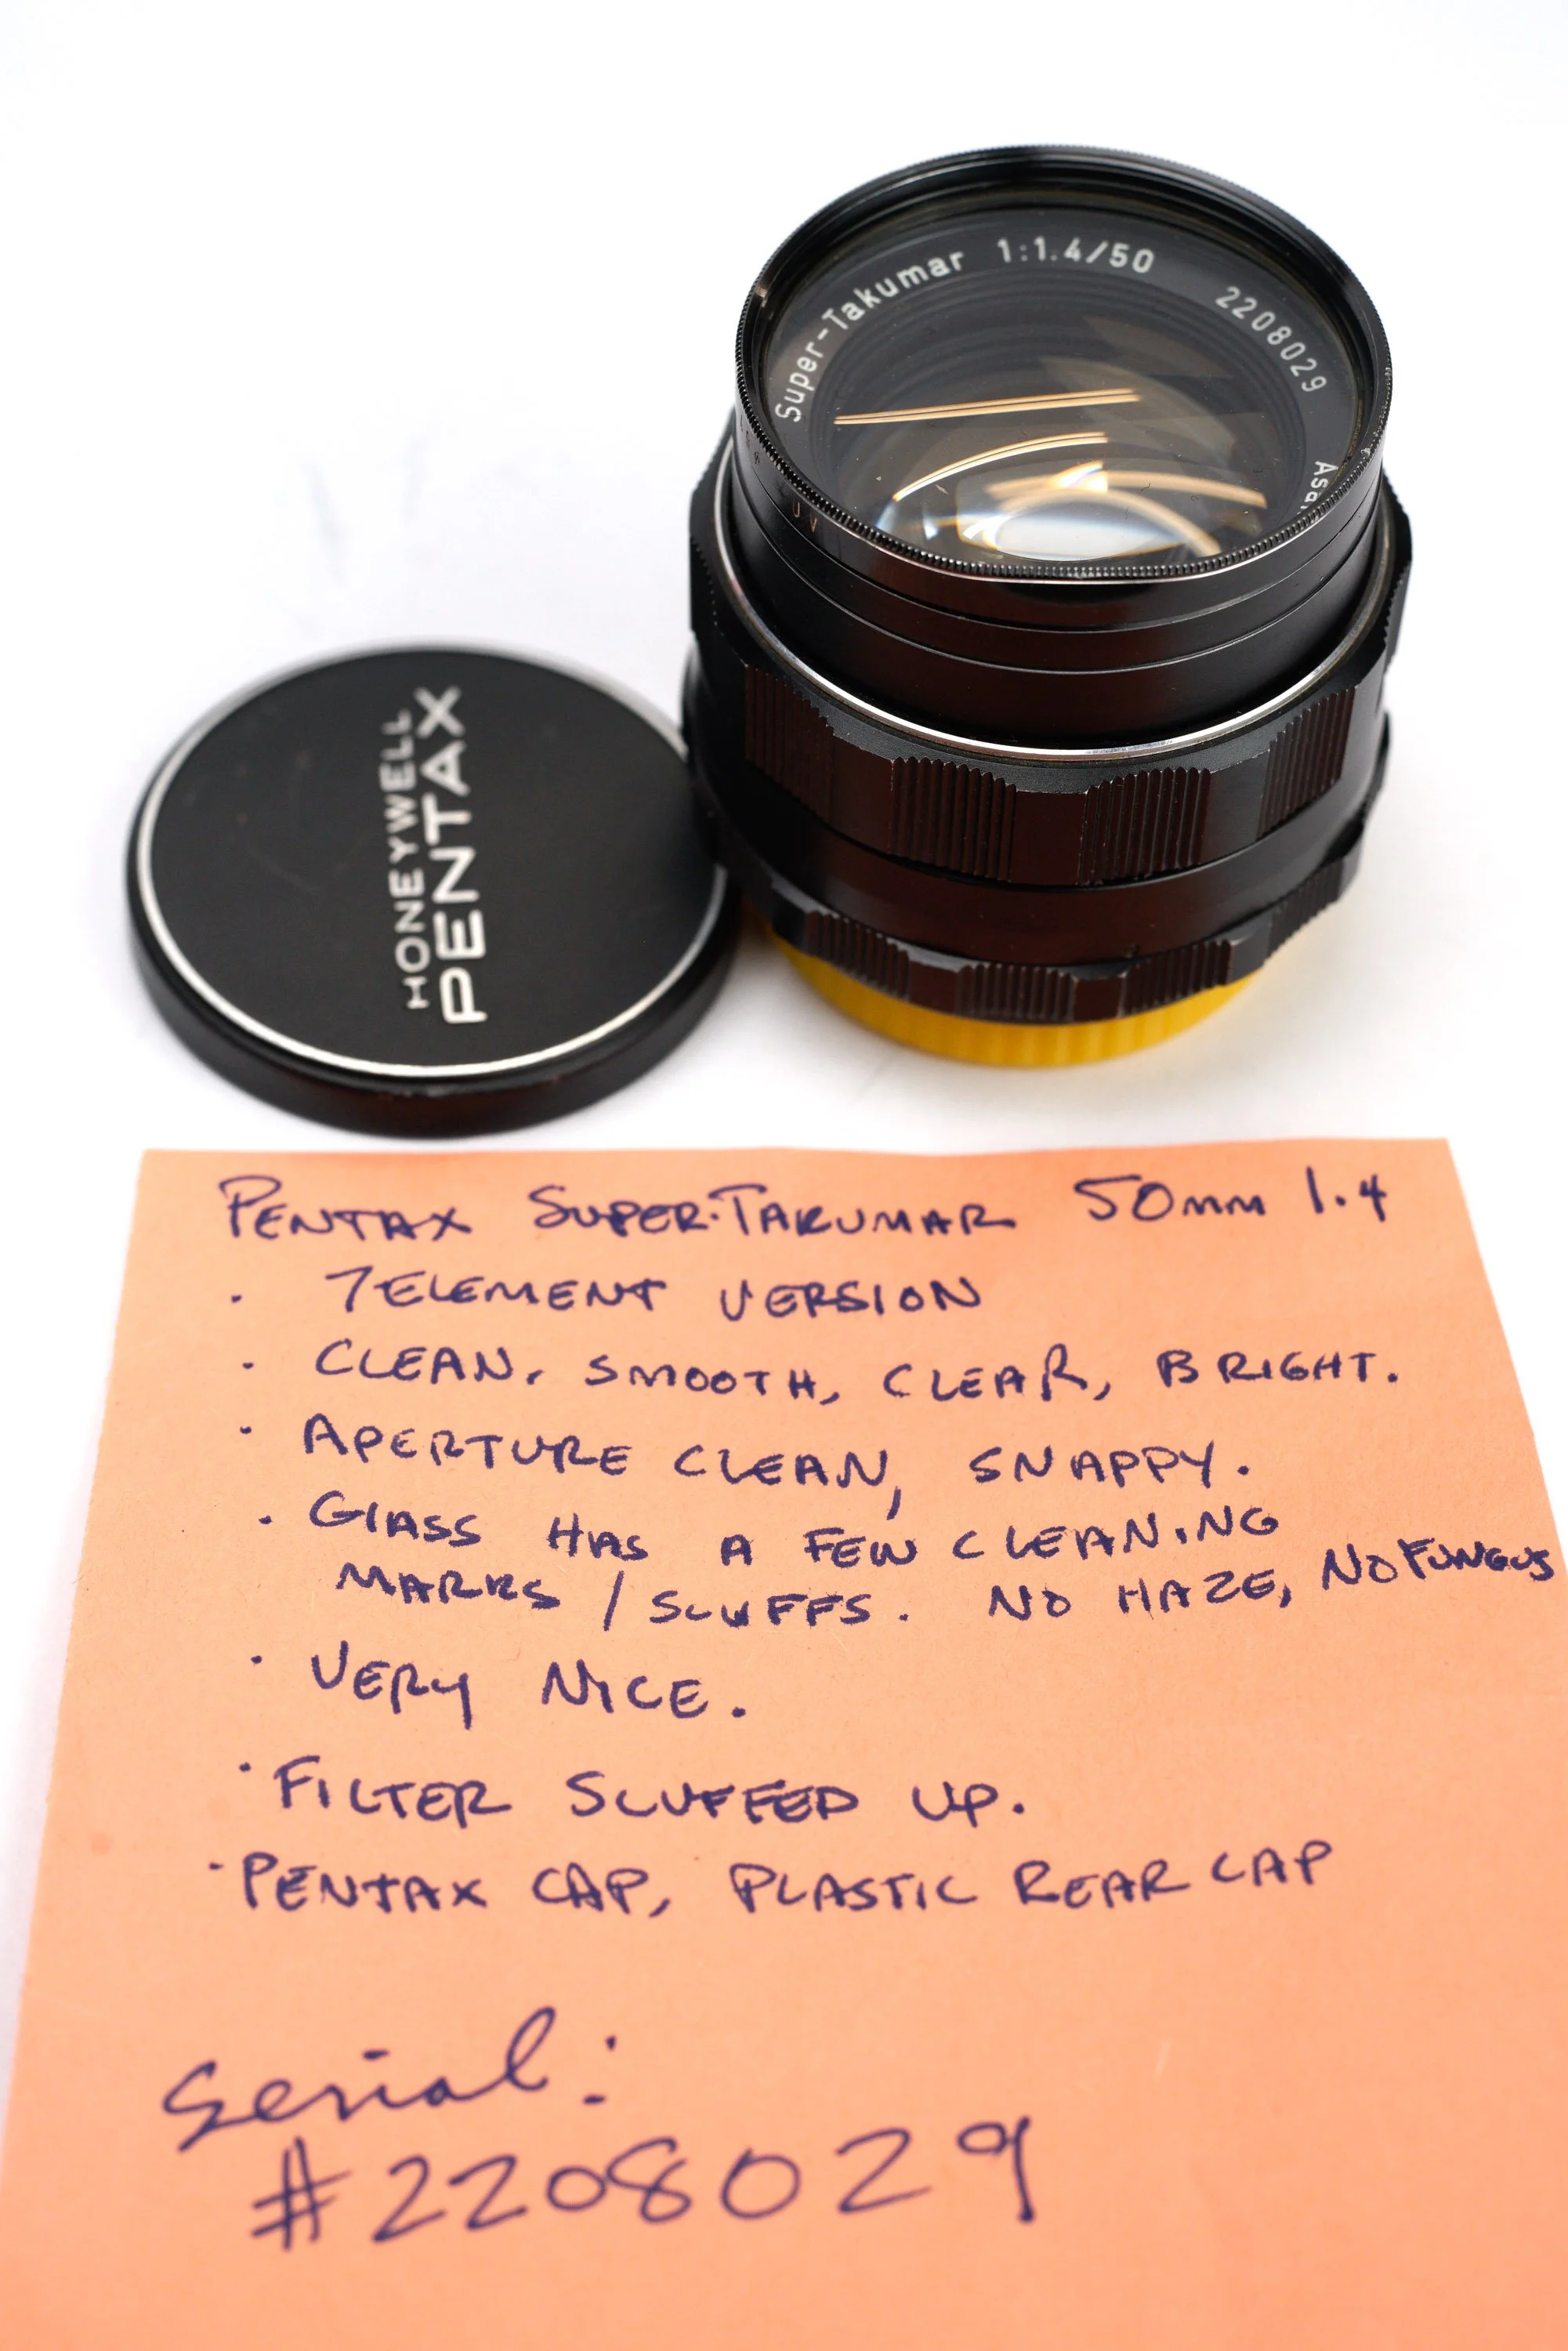 Super-Takumar 1:1.4/50 2208029 Asa
UV
HONEYWELL
PENTAX
PENTAX SUPER-TAKUMAR 50mm 1.4
· 7 ELEMENT VERSION
· CLEAN, SMOOTH, CLEAR, BRIGHT.
· APERTURE CLEAN, SNAPPY.
· GLASS HAS A FEW CLEANING
MARKS / SCUFFS. NO HAZE, NO FUNGUS
· VERY NICE.
· FILTER SCUFFED UP.
· PENTAX CAP, PLASTIC REAR CAP
Serial:
#2208029